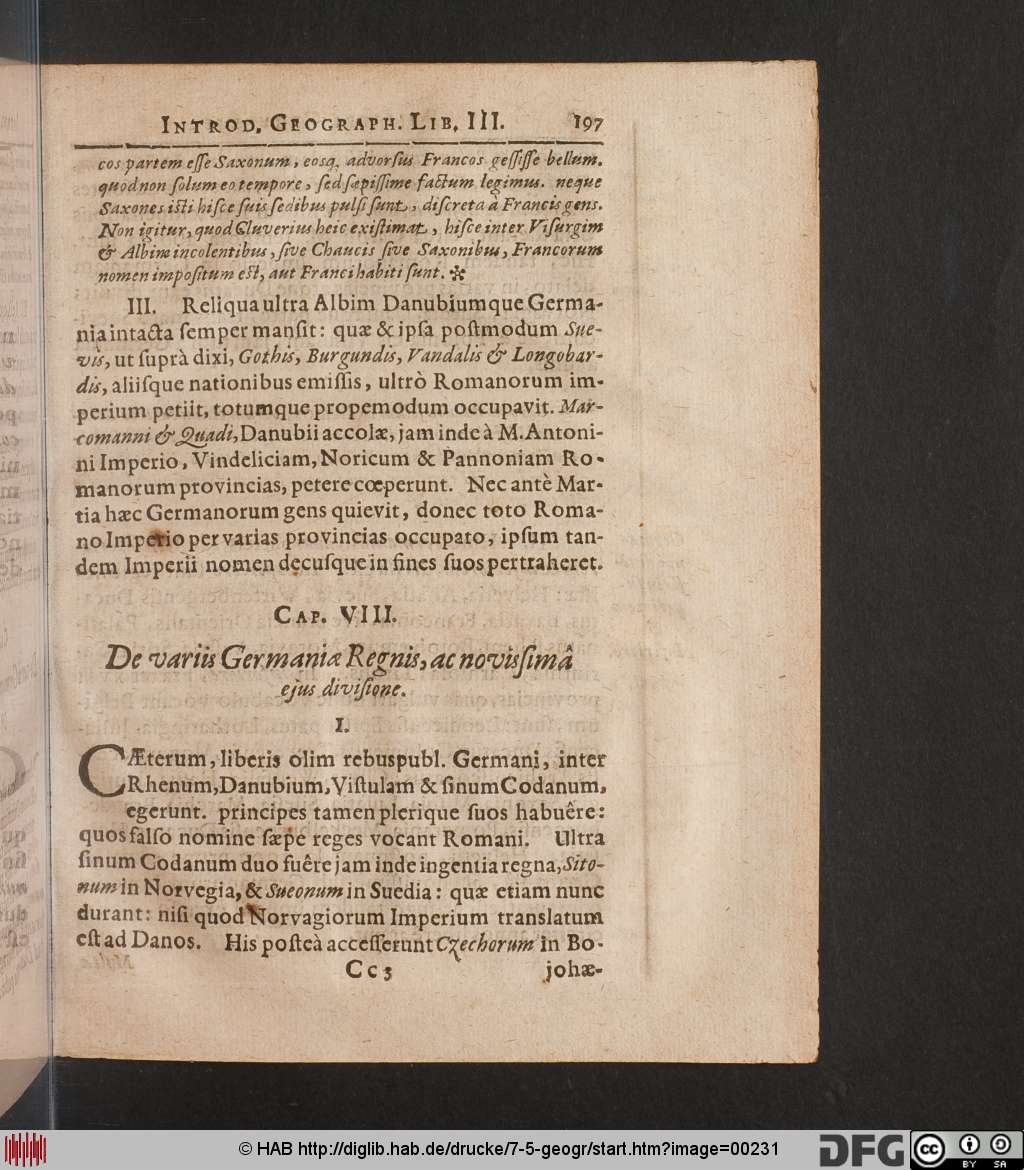 INTROD. GEOGRAPH. LIB. III. 197
cos partem eſſe Saxonum, eosq, advorſus Francos geſſiſſe bellum.
quod non ſolum eo tempore, ſed ſæpiſſime factum legimus. neque
Saxones iſti hiſce ſuis ſedibus pulſi ſunt, diſcreta à Francis gens.
Non igitur, quod Cluverius heic exiſtimat, hiſce inter Viſurgim
& Albim incolentibus, ſive Chaucis ſive Saxonibus, Francorum
nomen impoſitum eſt, aut Franci habiti ſunt. ✻
III. Reliqua ultra Albim Danubiumque Germa-
nia intacta ſemper manſit: quæ & ipſa poſtmodum Sue-
vis, ut ſuprà dixi, Gothis, Burgundis, Vandalis & Longobar-
dis, aliiſque nationibus emiſſis, ultrò Romanorum im-
perium petiit, totumque propemodum occupavit. Mar-
comanni & Quadi, Danubii accolæ, jam inde à M. Antoni-
ni Imperio, Vindeliciam, Noricum & Pannoniam Ro-
manorum provincias, petere cœperunt. Nec antè Mar-
tia hæc Germanorum gens quievit, donec toto Roma-
no Imperio per varias provincias occupato, ipſum tan-
dem Imperii nomen decuſque in fines ſuos pertraheret.
CAP. VIII.
De variis Germaniæ Regnis, ac novisſimâ
ejus diviſione.
I.
CÆterum, liberis olim rebuspubl. Germani, inter
Rhenum, Danubium, Viſtulam & ſinum Codanum,
egerunt. principes tamen plerique ſuos habuêre:
quos falſo nomine ſæpe reges vocant Romani. Ultra
ſinum Codanum duo fuêre jam inde ingentia regna, Sito-
num in Norvegia, & Sueonum in Suedia: quæ etiam nunc
durant: niſi quod Norvagiorum Imperium translatum
eſt ad Danos. His poſteà acceſſerunt Czechorum in Bo-
Cc3 johæ-
© HAB http://diglib.hab.de/drucke/7-5-geogr/start.htm?image=00231
DFG
cc BY SA